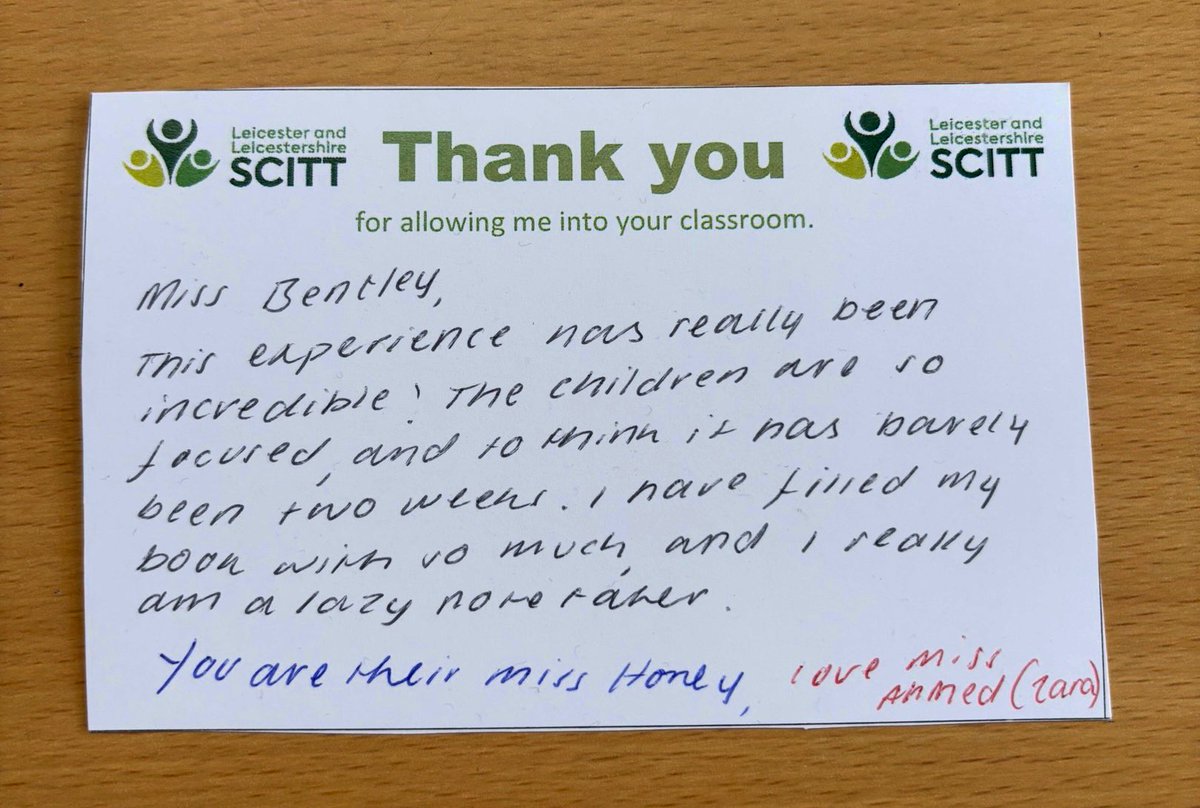 Leicester and
Leicestershire
SCITT
Thank you
Leicester and
Leicestershire
SCITT
for allowing me into your classroom.
Miss Bentley,
This experience has really been
incredible! The children are so
focused, and to think it has barely
been two weeks. I have filled my
book with so much, and I really
am a lazy note taker.
You are their miss Honey, Love Miss
Ahmed (Zara)